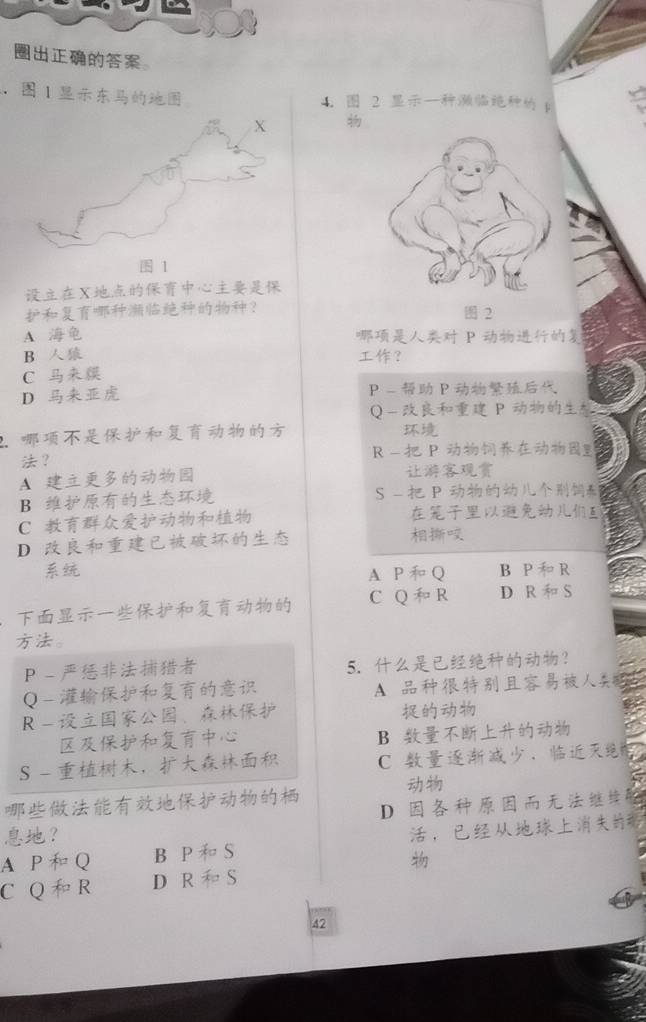 圈出正确的答案。
图 1 显示东马的地图
X
图 1
设立在X地点的保育中心主要是保
护和复育哪种濒临绝种的物种？
A 海龟
B 人猿
C 马来貘
D 马来亚虎
2. 哪项不是保护和复育动物的方
法？
A 建立更多的动物园
B 维护原有的生态环境
C 教育群众爱护动物和植物
D 改良和重建已被破坏的生态
系统
下面显示一些保护和复育动物的
方法。
P – 严惩非法捕猎者
Q – 灌输保护和复育的意识
R – 设立国家公园、森林保护
区及保护和复育中心
S – 重植树木，扩大森林面积
哪些做法能有效地保护动物的栖
息地？
A P和Q B P和S
C Q和R D R和S
4. 图 2 显示一种濒临绝种的
物
图 2
哪项是人类对 P 动物进行的复
工作？
P – 帮助 P 动物繁殖后代
Q – 改良和重建 P 动物的生态
环境
R – 把 P 动物饲养在动物园里
让游客观赏
S – 把 P 动物的幼儿个别饲养
在笼子里以避免幼儿们互
相撕咬
A P和Q B P和R
C Q和R D R和S
5. 什么是已经绝种的动物？
A 品种很特别且容易被人类
捉的动物
B 数量不断上升的动物
C 数量逐渐减少，临近灭绝
动物
D 因各种原因而无法继续
活，已经从地球上消失的
物
42